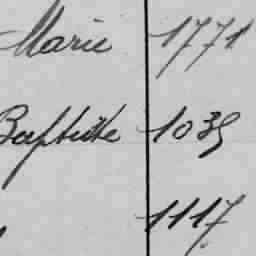 Marie 1771
Baptiste 1035
1117